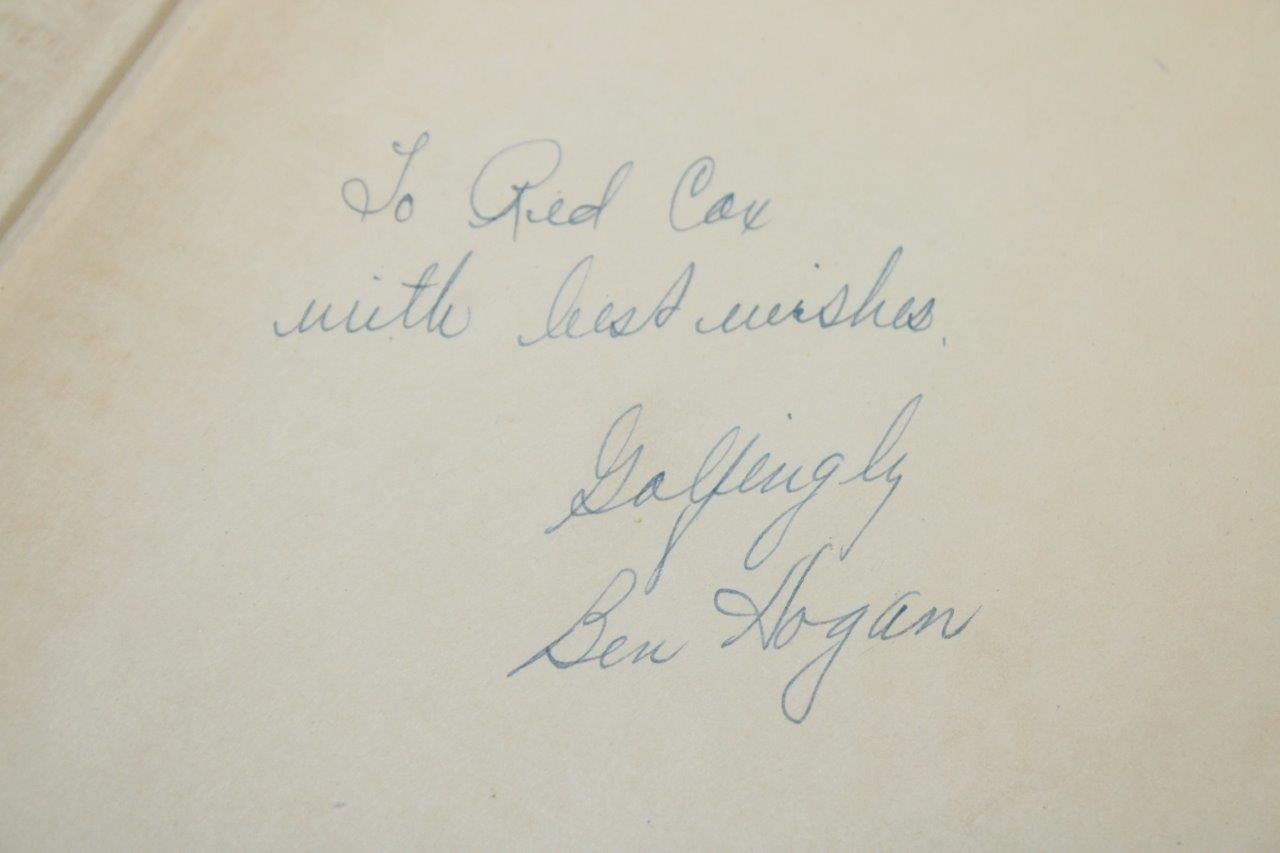 To Red Cox
with best wishes.
Golfingly
Ben Hogan